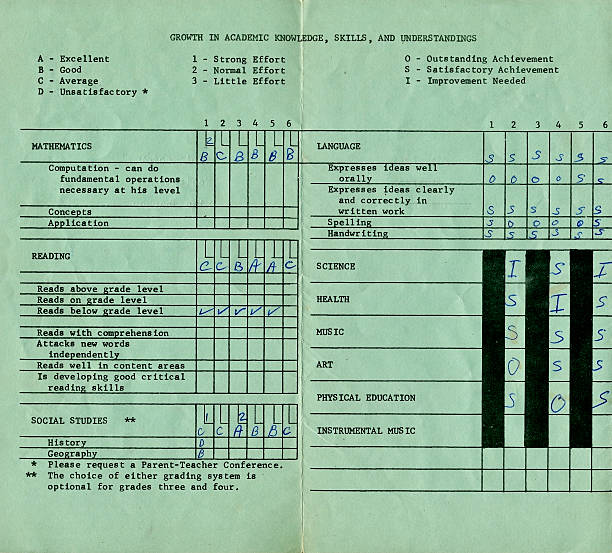 GROWTH IN ACADEMIC KNOWLEDGE, SKILLS, AND UNDERSTANDINGS
A - Excellent
B - Good
C - Average
D - Unsatisfactory *
1 - Strong Effort
2 - Normal Effort
3 - Little Effort
O - Outstanding Achievement
S - Satisfactory Achievement
I - Improvement Needed
1 2 3 4 5 6
2
MATHEMATICS B C B B B B
Computation - can do
fundamental operations
necessary at his level
Concepts
Application
READING C C B A A C
Reads above grade level
Reads on grade level
Reads below grade level ✓ ✓ ✓ ✓ ✓
Reads with comprehension
Attacks new words
independently
Reads well in content areas
Is developing good critical
reading skills
1 2
SOCIAL STUDIES ** C C A B B C
History D
Geography B
* Please request a Parent-Teacher Conference.
** The choice of either grading system is
optional for grades three and four.
1 2 3 4 5 6
LANGUAGE S S S S S S
Expresses ideas well
orally O O O O S S
Expresses ideas clearly
and correctly in
written work S S S S S S
Spelling S O O O O S
Handwriting S S S S S S
SCIENCE I S I
HEALTH S I S
MUSIC S S S
ART O S S
PHYSICAL EDUCATION S O S
INSTRUMENTAL MUSIC